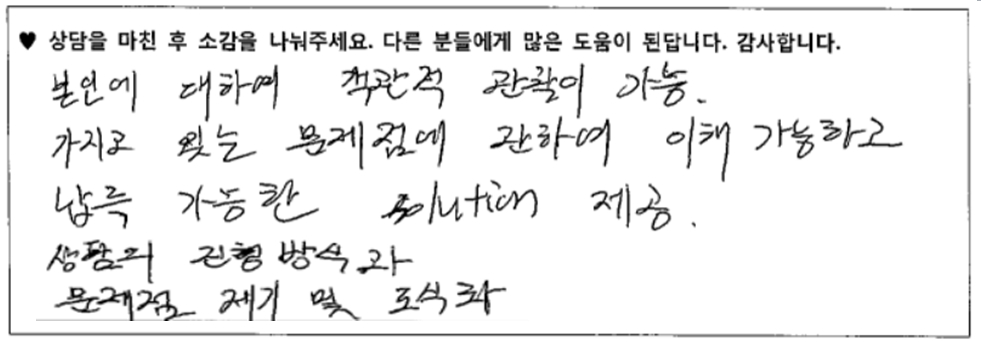 ♥ 상담을 마친 후 소감을 나눠주세요. 다른 분들에게 많은 도움이 된답니다. 감사합니다.
본인에 대하여 객관적 관찰이 가능.
가지고 있는 문제점에 관하여 이해 가능하고
납득 가능한 solution 제공.
상담의 진행방식과
문제점 제기 및 도식화